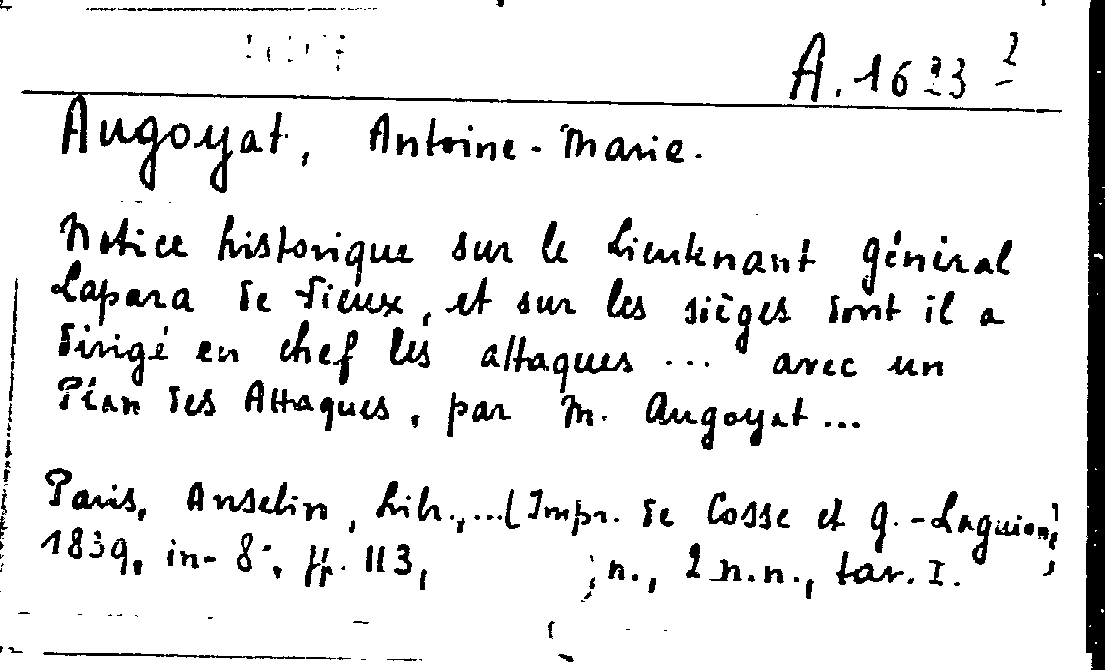 A. 1623²
Augoyat, Antoine-Marie.
Notice historique sur le Lieutenant général
Lapara de Fieux, et sur les sièges dont il a
dirigé en chef les attaques ... avec un
Plan des Attaques, par M. Augoyat ...
Paris, Anselin, Lib., ... (Impr. de Cosse et G.-Laguion),
1839, in-8°, ff. 113, n., 2 n.n., tav. I.